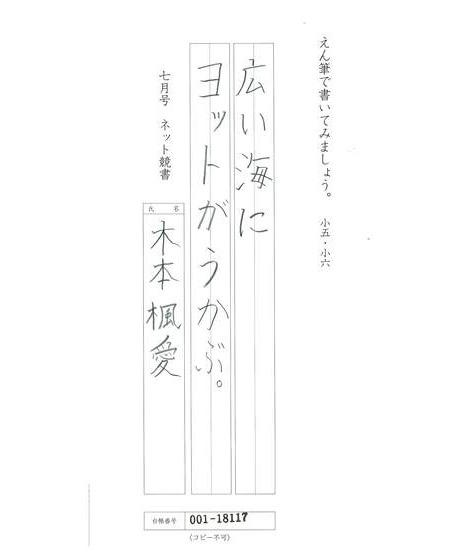 えん筆で書いてみましょう。 小五・小六
広い海に
ヨットがうかぶ。
七月号 ネット競書
氏名
木本楓愛
台帳番号 001-18117
(コピー不可)